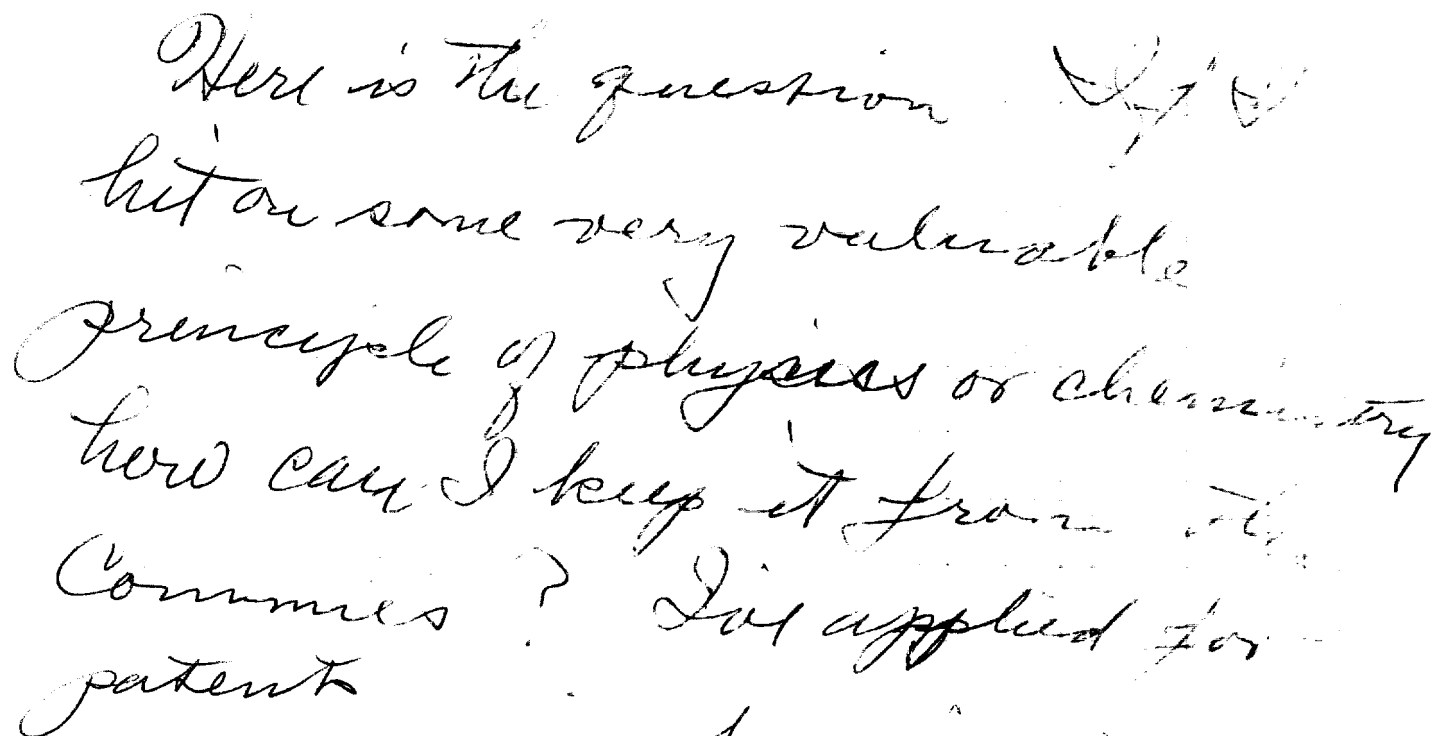 Here is the question If I
hit on some very valuable
principle of physics or chemistry
how can I keep it from the
Commies? I've applied for
patents